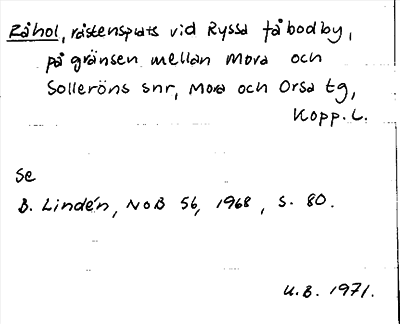 Råhol, råstensplats vid Ryssa fåbodby,
på gränsen mellan Mora och
Solleröns snr, Mora och Orsa tg,
Kopp. L.
Se
B. Lindén, NoB 56, 1968, s. 80.
U.B. 1971.